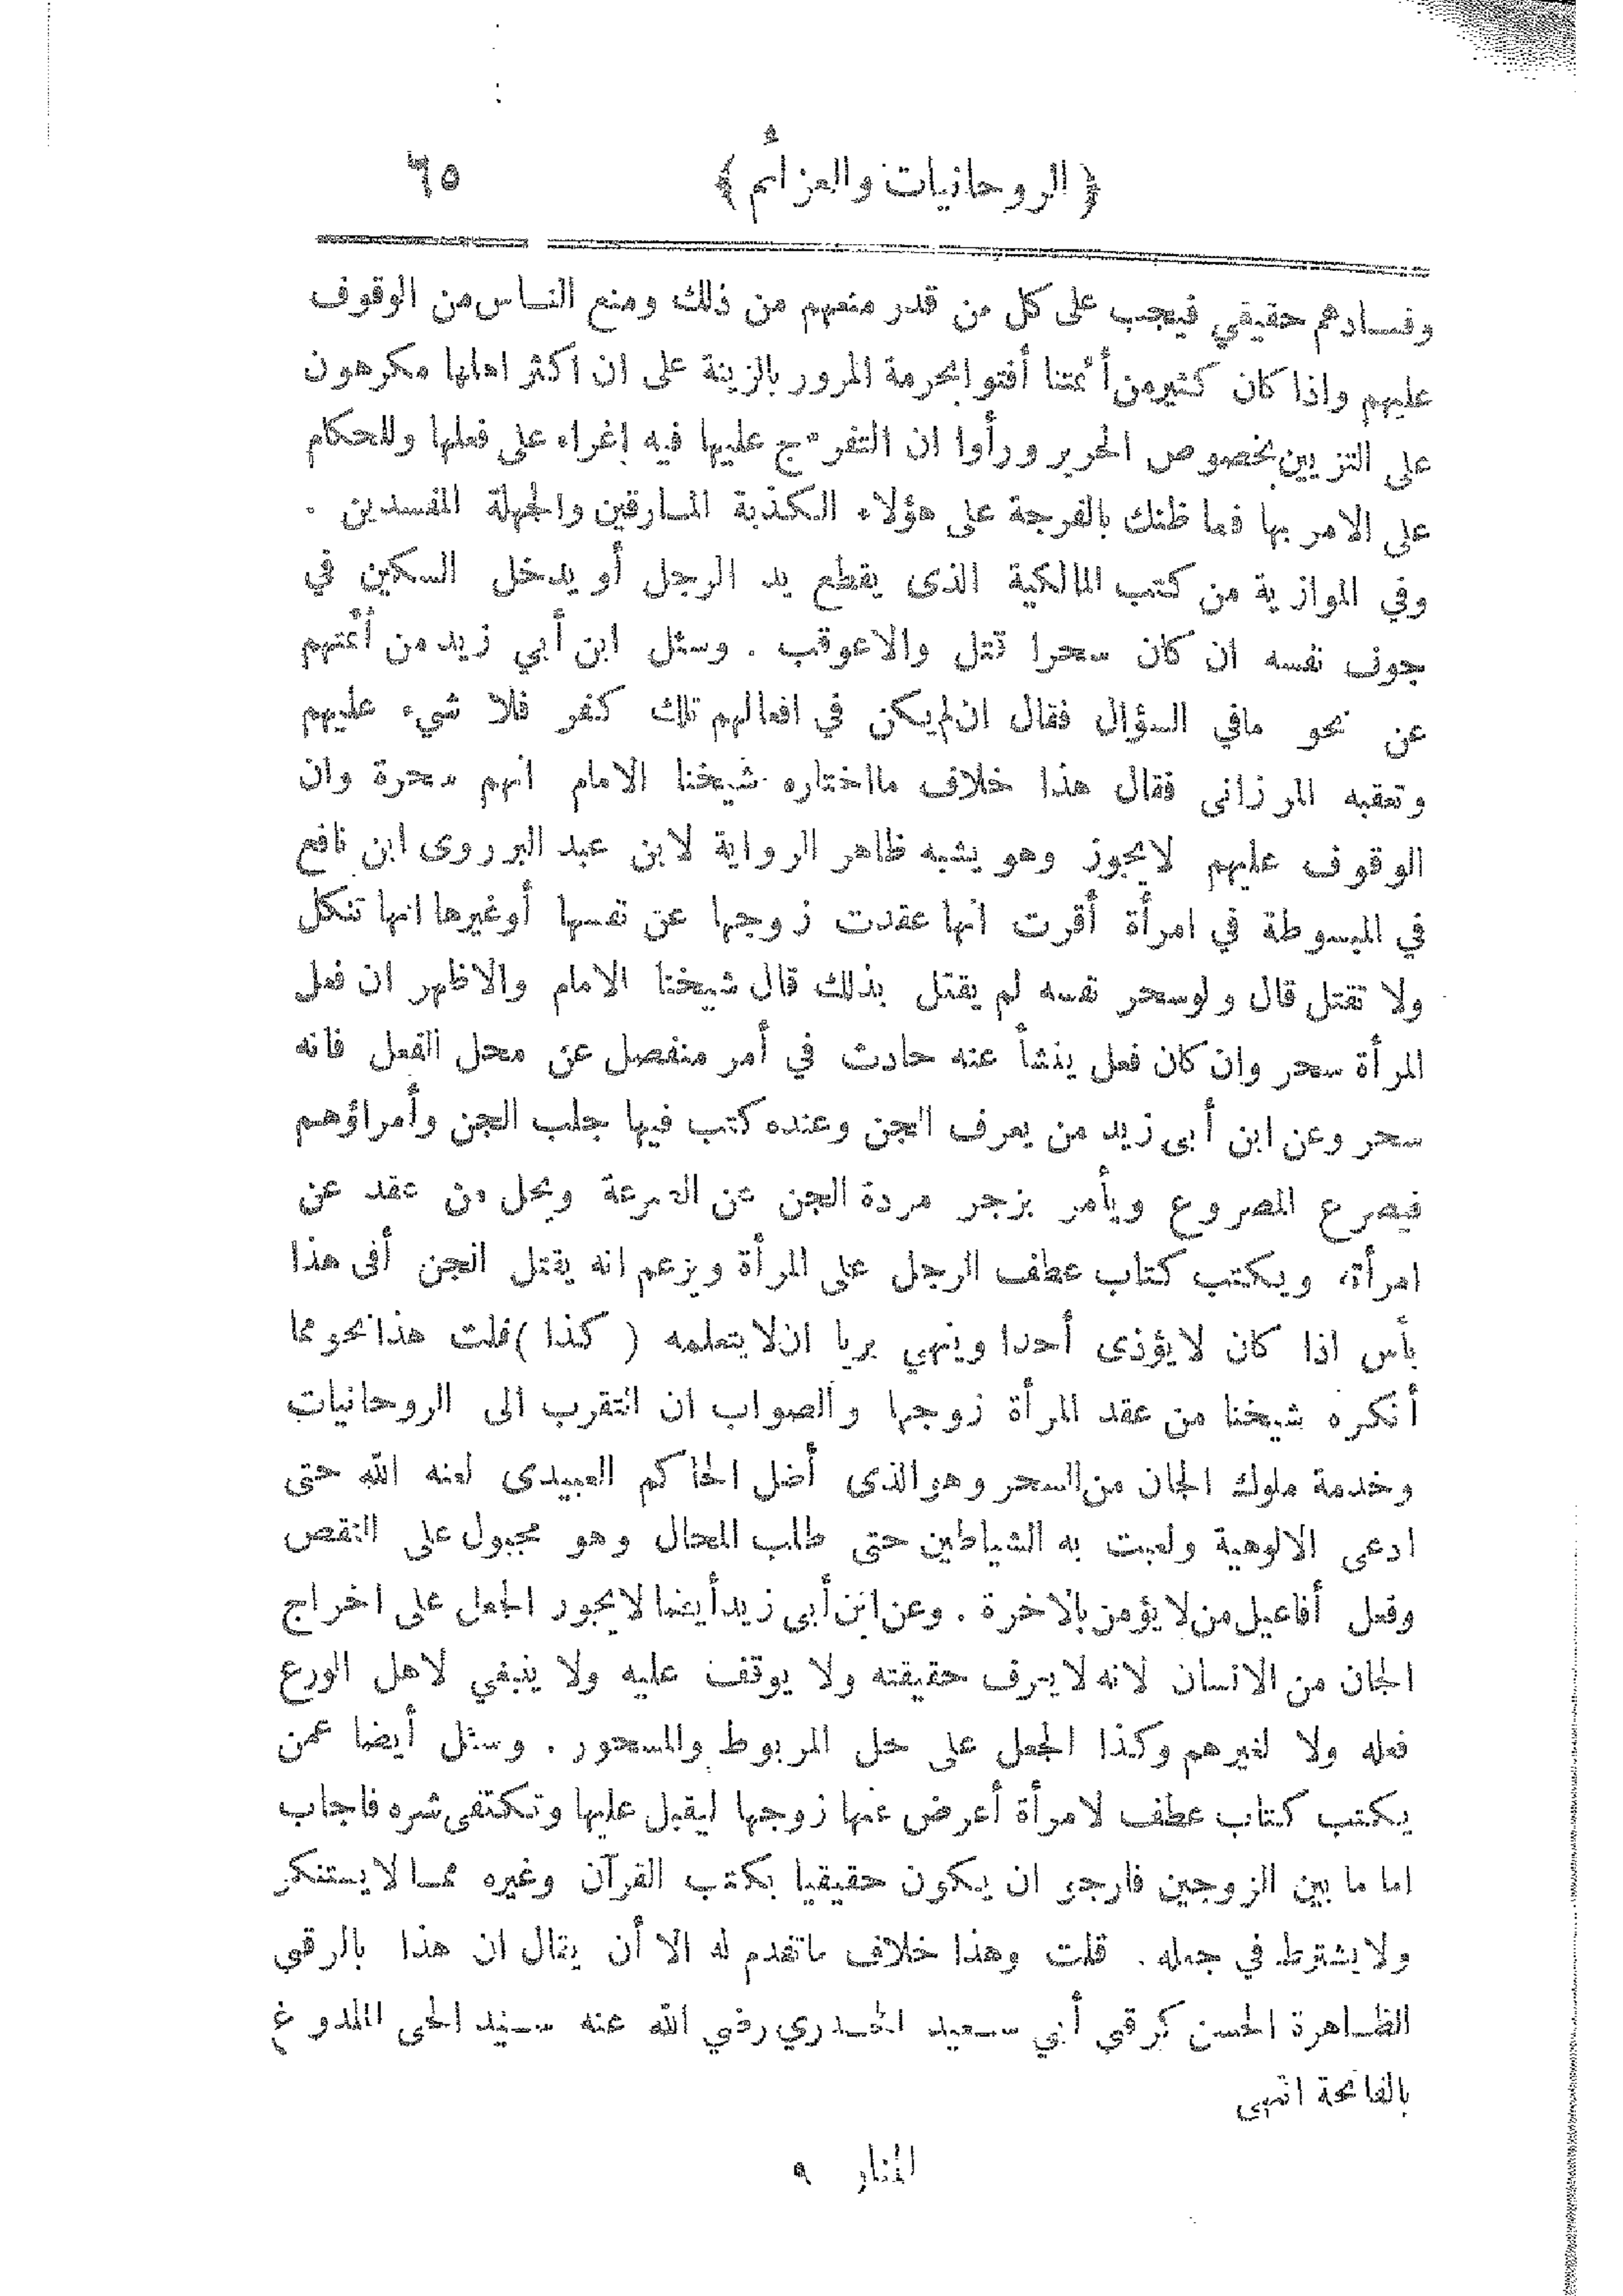 ﴿ الروحانيات والعزائم ﴾ ٦٥
وفسادهم حقيقي فيجب على كل من قدر منعهم من ذلك ومنع الناس من الوقوف
عليهم واذا كان كثير من أئمتنا أفتوا بحرمة المرور بالزينة على ان اكثر اهلها مكرهون
على التزيين بخصوص الحرير ورأوا ان التفرج عليها فيه إغراء على فعلها وللحكام
على الامر بها فما ظنك بالفرجة على هؤلاء الكذبة المارقين والجهلة المفسدين .
وفي الموازية من كتب المالكية الذى يقطع يد الرجل أو يدخل السكين في
جوف نفسه ان كان سحرا قتل والا عوقب . وسئل ابن أبي زيد من أئمتهم
عن نحو مافي السؤال فقال ان لم يكن في افعالهم تلك كفر فلا شيء عليهم
وتعقبه المرزانى فقال هذا خلاف مااختاره شيخنا الامام انهم سحرة وان
الوقوف عليهم لايجوز وهو يشبه ظاهر الرواية لابن عبد البر روى ابن نافع
في المبسوطة في امرأة أقرت انها عقدت زوجها عن نفسها أوغيرها انها تنكل
ولا تقتل قال ولو سحر نفسه لم يقتل بذلك قال شيخنا الامام والاظهر ان فعل
المرأة سحر وان كان فعل ينشأ عنه حادث في أمر منفصل عن محل الفعل فانه
سحر وعن ابن أبى زيد من يعرف الجن وعنده كتب فيها جلب الجن وأمراؤهم
فيصرع المصروع ويأمر بزجر مردة الجن عن الصرعة ويحل من عقد عن
امرأة، ويكتب كتاب عطف الرجل على المرأة ويزعم انه يقتل الجن أفى هذا
بأس اذا كان لايؤذى أحدا وينهي بريا ان لايتعلمه ( كذا ) قلت هذا نحو مما
أنكره شيخنا من عقد المرأة زوجها والصواب ان التقرب الى الروحانيات
وخدمة ملوك الجان من السحر وهو الذى أضل الحاكم العبيدى لعنه الله حتى
ادعى الالوهية ولعبت به الشياطين حتى طلب المحال وهو مجبول على النقص
وفعل أفاعيل من لا يؤمن بالآخرة . وعن ابن أبى زيد أيضا لايجوز الجعل على اخراج
الجان من الانسان لانه لا يعرف حقيقته ولا يوقف عليه ولا ينبغي لاهل الورع
فعله ولا لغيرهم وكذا الجعل على حل المربوط والمسحور . وسئل أيضا عمن
يكتب كتاب عطف لامرأة أعرض عنها زوجها ليقبل عليها وتكتفى شره فاجاب
اما ما بين الزوجين فارجو ان يكون حقيقيا بكتب القرآن وغيره مما لا يستنكر
ولا يشترط في جعله . قلت وهذا خلاف ماتقدم له الا أن يقال ان هذا بالرقى
الظاهرة الحسن كرقى أبي سعيد الخدري رضي الله عنه سيد الحى الملدوغ
بالفاتحة انتهى
المنار ٩